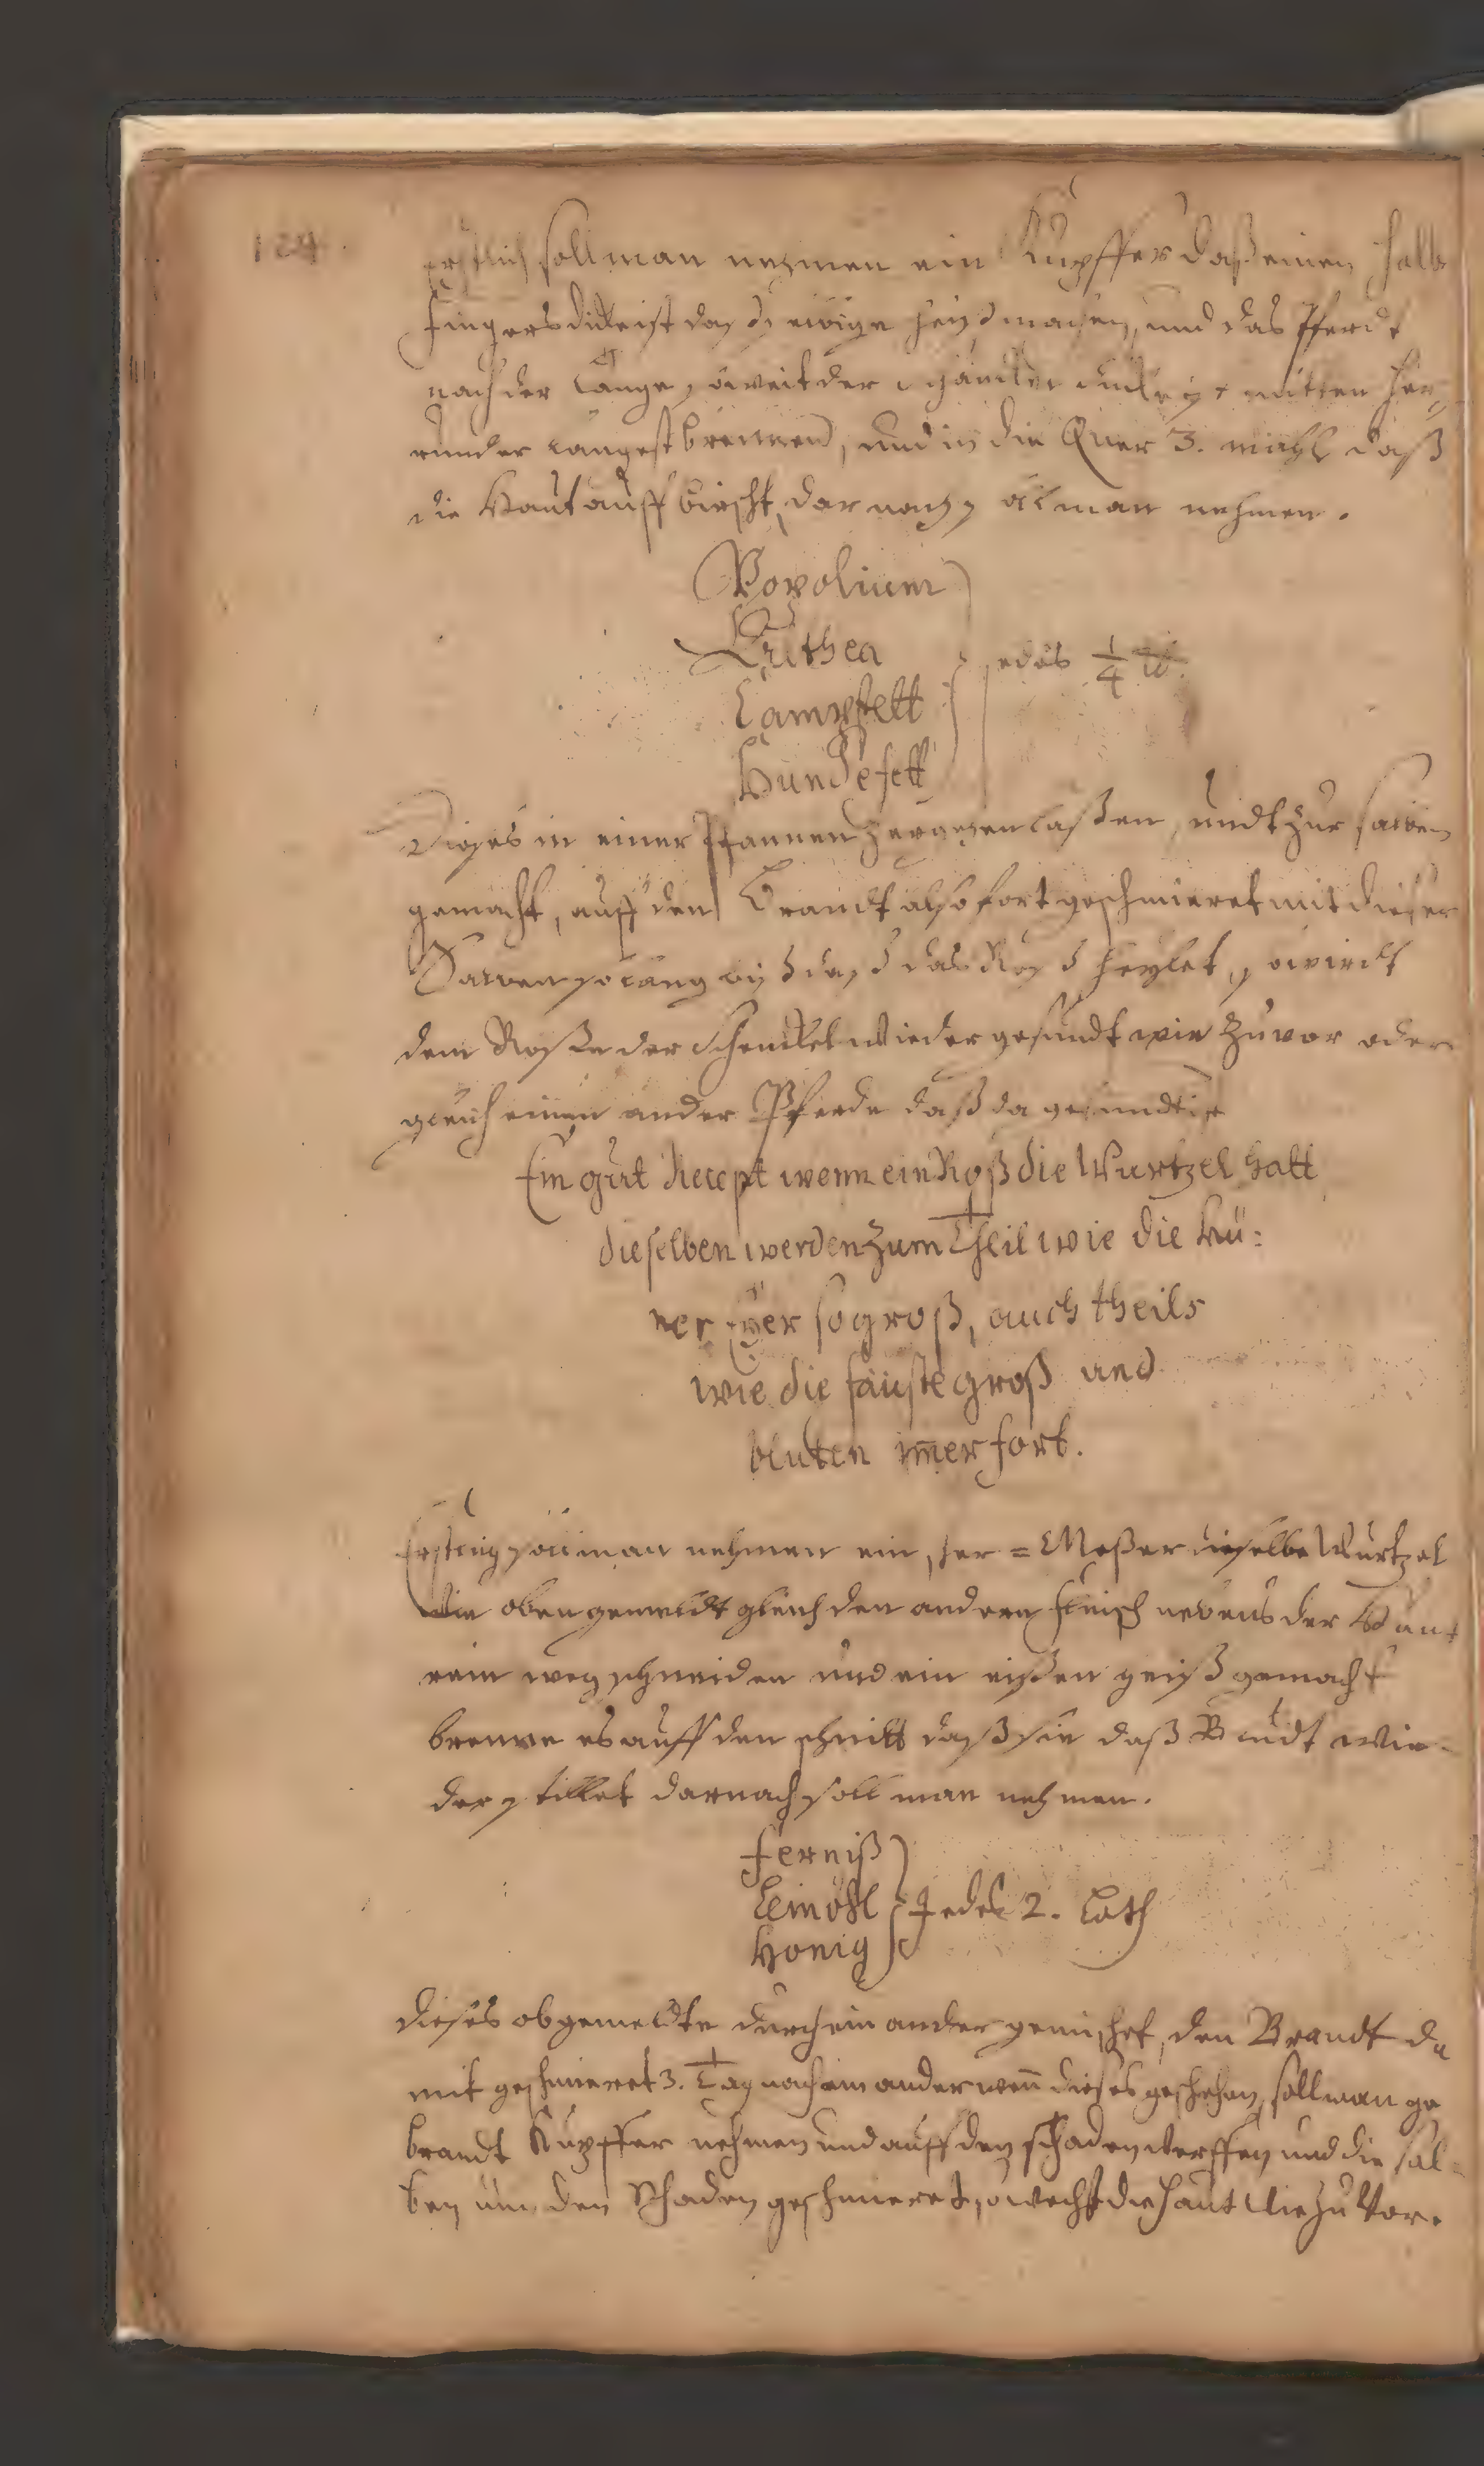 124.
Erstlich soll man nehmen ein Kupffer daß einen halb
fingers dicke ist daß heiß machen, und das Pferdt
nach der Länge, soweit der mitten her=
runder langest brennen, und in die Quer 3. mahl daß
die Haut auff birscht, darnach soll man nehmen.
Popolium
Althea
Campfett
Hundefett
jedes 1/4 ℔.
Dieses in einer Pfannen zergehen laßen, undt zur salben
gemacht, auff den Brandt also fort geschmieret mit dieser
Salben so lang biß daß das Roß heylet, so wirdt
dem Roße der Schenckel wieder gesundt wie zuvor oder
gleich einem ander Pferde daß da gesundt ist
Ein gut Recept wenn ein Roß die Wurtzel hatt
dieselben werden zum Theil wie die Hü:
ner Eyer so groß, auch theils
wie die fäuste groß und
bluten im̄er fort.
Erstlich soll man nehmen ein scher = Meßer dieselbe Wurtzel
wie oben gemeldt gleich den andern fleisch nebens der Haut
rein weg schneiden und ein eißen heiß gemacht
brenne es auff den schnitt daß sie daß Bludt wie=
der stillet darnach soll man nehmen.
ferniß
Leinöhl
Honig
Jedes 2. Loth
Dieses obgemeldte durch ein ander gemischet, den Brandt da
mit geschmieret 3. Tag nach ein ander wen̄ dieses geschehen, soll man ge
brandt Kupffer nehmen und auff den schaden werffen und die sal=
ben um den Schaden geschmieret, so wechst die Haut wie zu Vor.